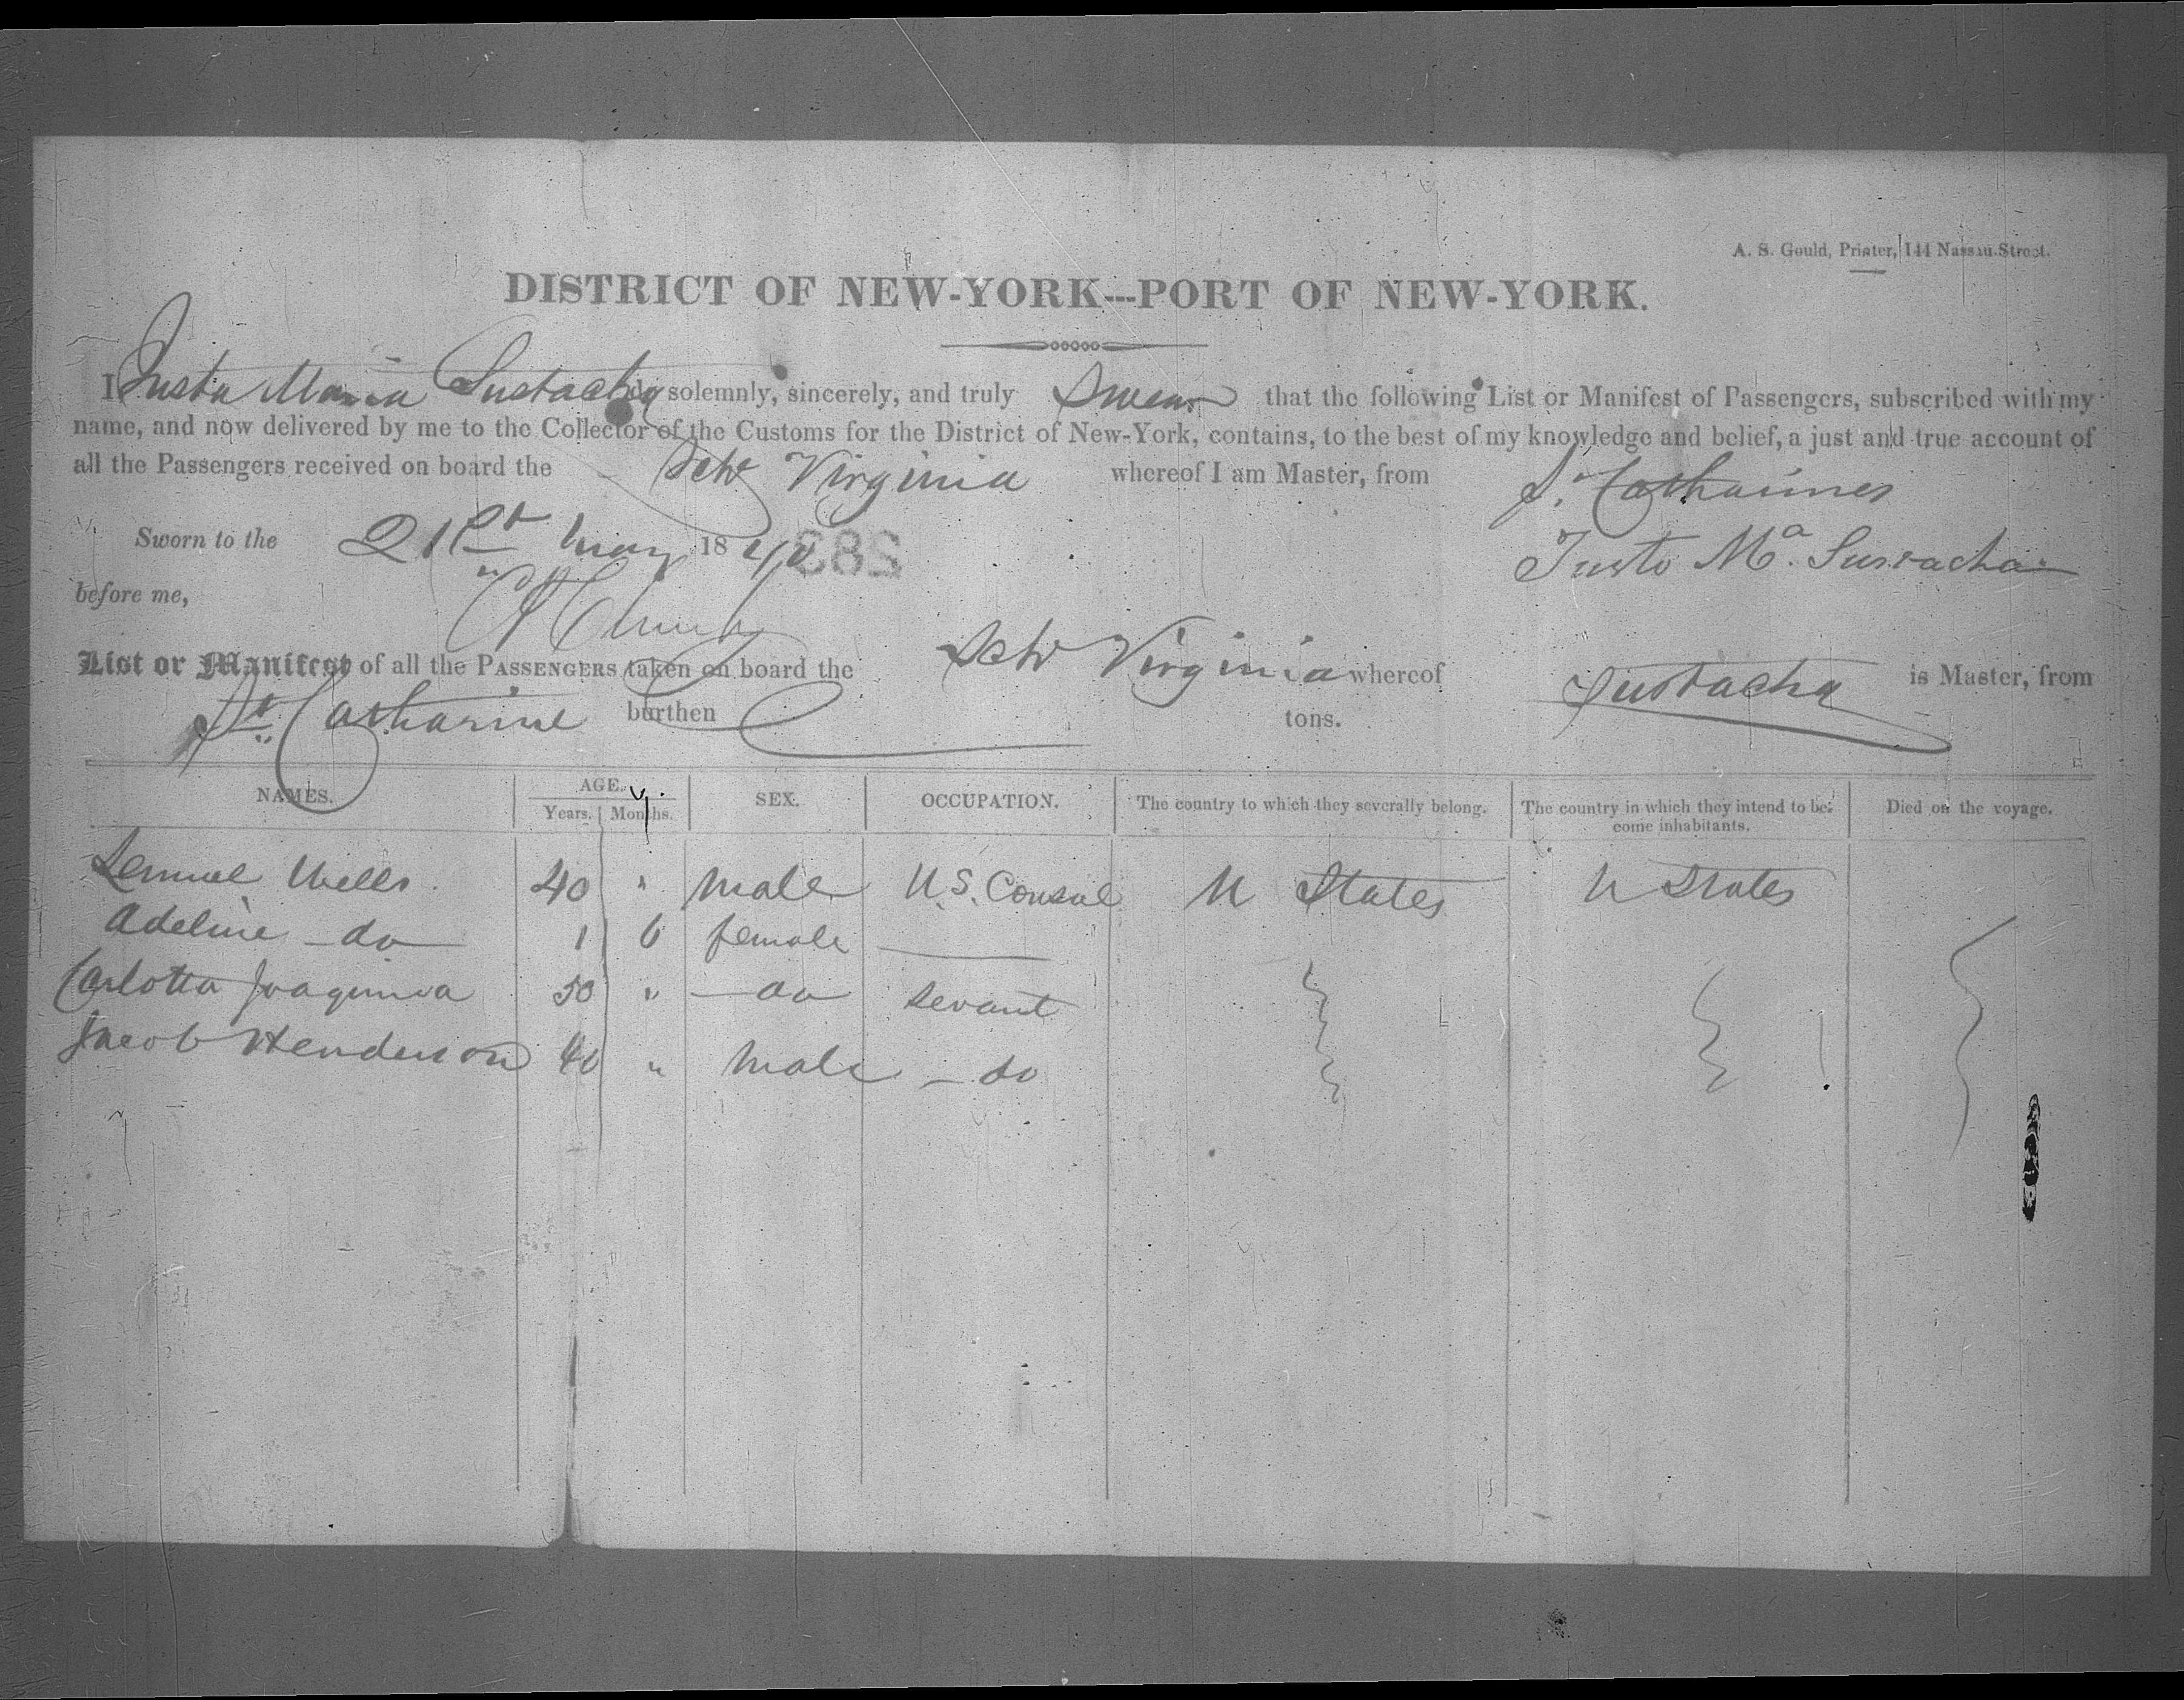 A. S. Gould, Printer, 144 Nassau Street.
DISTRICT OF NEW-YORK---PORT OF NEW-YORK.
I Justa Maria Sustacha do solemnly, sincerely, and truly Swear that the following List or Manifest of Passengers, subscribed with my
name, and now delivered by me to the Collector of the Customs for the District of New-York, contains, to the best of my knowledge and belief, a just and true account of
all the Passengers received on board the Schr Virginia whereof I am Master, from St. Catharines
Sworn to the 21st May 1840 283 Justo Ma. Sustacha
before me,
List or Manifest of all the PASSENGERS taken on board the Schr Virginia whereof Sustacha is Master, from
St. Catharine burthen tons.
NAMES. AGE. SEX. OCCUPATION. The country to which they severally belong. The country in which they intend to be- Died on the voyage.
Years. Months. come inhabitants.
Lemuel Wells. 40 " Male U.S. Consul U States U States
Adeline - do 1 6 female
Carlotta Joaquina 50 " - do Servant
Jacob Henderson 40 " Male - do